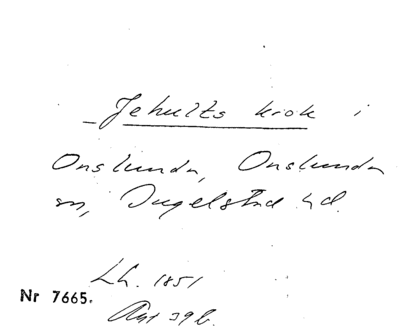 Jehults krok i
Onslunda, Onslunda
sn, Ingelstad hd.
Lh. 1851
Nr 7665.
Akt 39b.